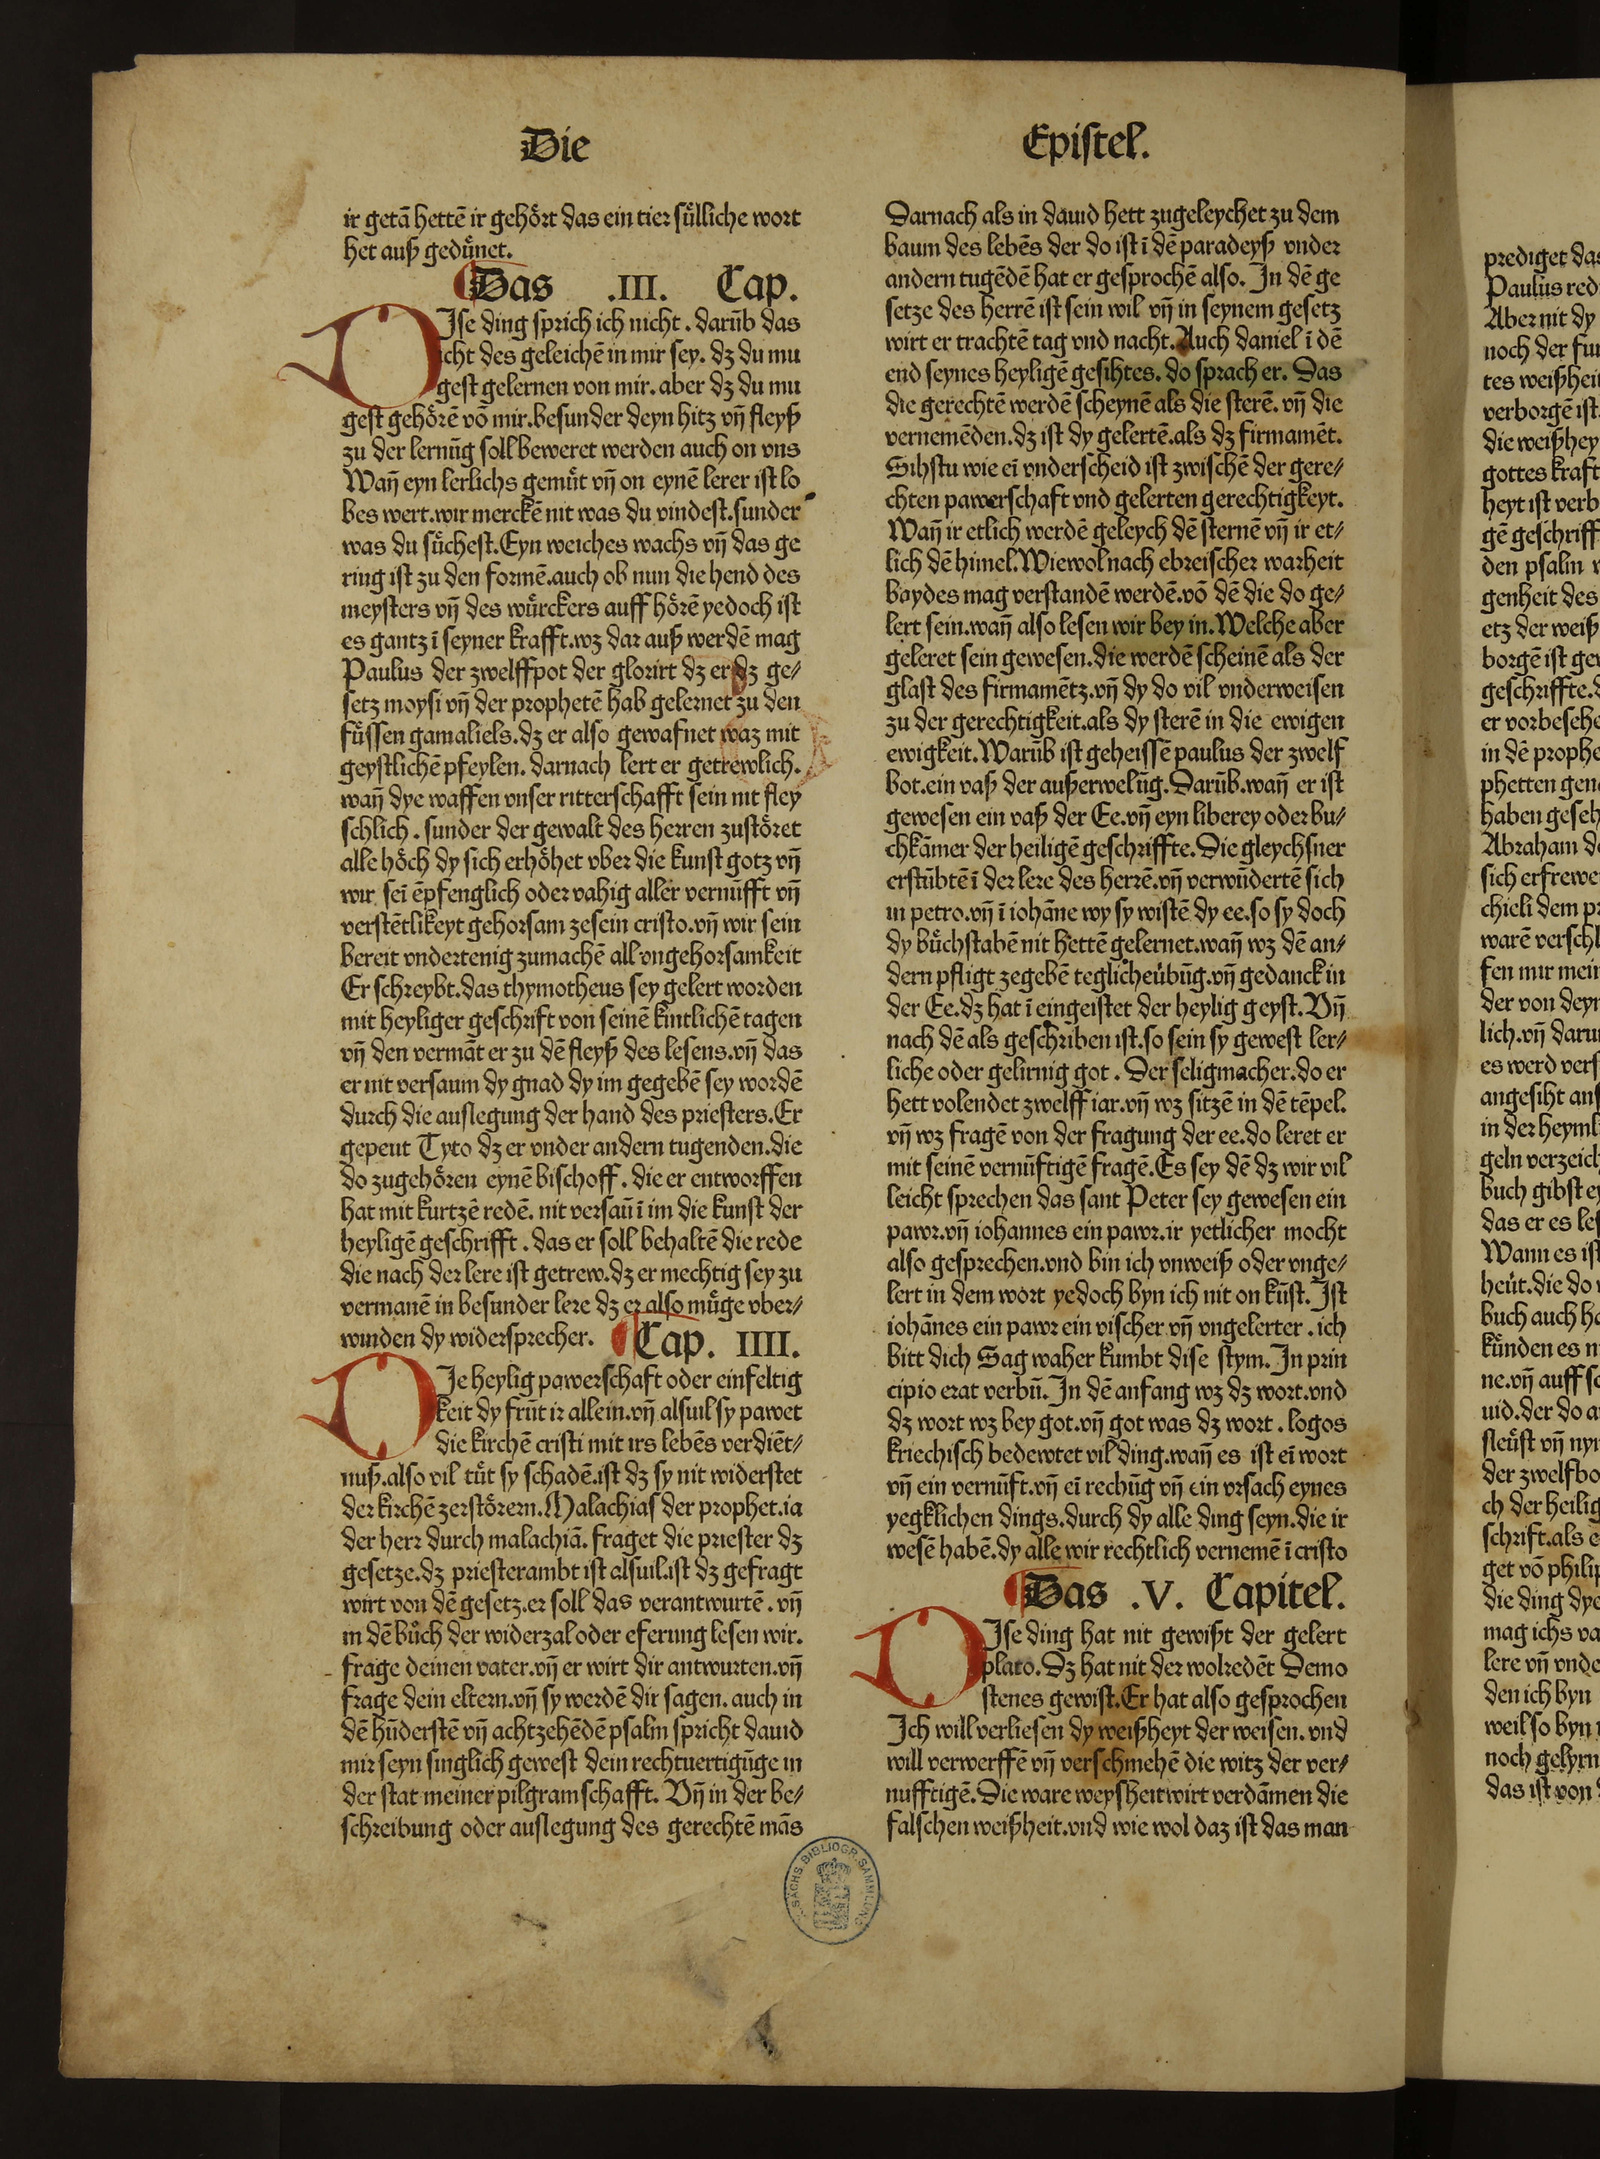 Die
Epistel.
ir getā hettē ir gehoͤrt das ein tier suͤlliche wort
het auß geduͤnet.
Das .III. Cap.
DIse ding sprich ich nicht. darūb das
icht des geleichē in mir sey. dz du mu
gest gelernen von mir. aber dz du mu
gest gehoͤrē vō mir. besunder deyn hitz vn̄ fleyß
zu der lernūg soll beweret werden auch on vns
Wan̄ eyn lerlichs gemuͤt vn̄ on eynē lerer ist lo
bes wert. wir merckē nit was du vindest. sunder
was du suͤchest. Eyn weiches wachs vn̄ das ge
ring ist zu den formē. auch ob nun die hend des
meysters vn̄ des wuͤrckers auff hoͤrē yedoch ist
es gantz ī seyner krafft. wz dar auß werdē mag
Paulus der zwelffpot der glorirt dz er dz ge⸗
setz moysi vn̄ der prophetē hab gelernet zu den
fuͤssen gamaliels. dz er also gewafnet waz mit
geystlichē pfeylen. darnach lert er getrewlich.
wan̄ dye waffen vnser ritterschafft sein nit fley
schlich. sunder der gewalt des herren zustoͤret
alle hoͤch dy sich erhoͤhet vber die kunst gotz vn̄
wir seī ēpfenglich oder vahig aller vernūfft vn̄
verstētlikeyt gehorsam zesein cristo. vn̄ wir sein
bereit vndertenig zumachē all vngehorsamkeit
Er schreybt. das thymotheus sey gelert worden
mit heyliger geschrift von seinē kintlichē tagen
vn̄ den vermāt er zu dē fleyß des lesens. vn̄ das
er nit versaum dy gnad dy im gegebē sey wordē
durch die auslegung der hand des priesters. Er
gepeut Tyto dz er vnder andern tugenden. die
do zugehoͤren eynē bischoff. die er entworffen
hat mit kurtzē redē. nit versaū ī im die kunst der
heyligē geschrifft. das er soll behaltē die rede
die nach der lere ist getrew. dz er mechtig sey zu
vermanē in besunder lere dz er also muͤge vber⸗
winden dy widersprecher. Cap. IIII.
DIe heylig pawerschaft oder einfeltig
keit dy frūt ir allein. vn̄ alsuil sy pawet
die kirchē cristi mit irs lebēs verdiēt⸗
nuß. also vil tuͤt sy schadē. ist dz sy nit widerstet
der kirchē zerstoͤrern. Malachias der prophet. ia
der herr durch malachiā. fraget die priester dz
gesetze. dz priesterambt ist alsuil. ist dz gefragt
wirt von dē gesetz. er soll das verantwurtē. vn̄
in dē buͦch der widerzal oder eferung lesen wir.
frage deinen vater. vn̄ er wirt dir antwurten. vn̄
frage dein eltern. vn̄ sy werdē dir sagen. auch in
dē hūderstē vn̄ achtzehēdē psalm spricht dauid
mir seyn singlich gewest dein rechtuertigūge in
der stat meiner pilgramschafft. Vn̄ in der be⸗
schreibung oder auslegung des gerechtē māß
Darnach als in dauid hett zugeleychet zu dem
baum des lebēs der do ist ī dē paradeyß vnder
andern tugēdē hat er gesprochē also. In dē ge
setze des herrē ist sein wil vn̄ in seynem gesetz
wirt er trachtē tag vnd nacht. Auch daniel ī dē
end seynes heyligē gesihtes. do sprach er. Das
die gerechtē werdē scheynē als die sterē. vn̄ die
vernemēden. dz ist dy gelertē. als dz firmamēt.
Sihstu wie eī vnderscheid ist zwischē der gere⸗
chten pawerschaft vnd gelerten gerechtigkeyt.
Wan̄ ir etlich werdē geleych dē sternē vn̄ ir et⸗
lich dē himel. Wiewol nach ebreischer warheit
baydes mag verstandē werdē. vō dē die do ge⸗
lert sein. wan̄ also lesen wir bey in. Welche aber
geleret sein gewesen. die werdē scheinē als der
glast des firmamētz. vn̄ dy do vil vnderweisen
zu der gerechtigkeit. als dy sterē in die ewigen
ewigkeit. Warūb ist geheissē paulus der zwelf
bot. ein vaß der außerwelūg. Darūb. wan̄ er ist
gewesen ein vaß der Ee. vn̄ eyn liberey oder bu⸗
chkāmer der heiligē geschriffte. Die gleychsner
erstūbtē ī der lere des herrē. vn̄ verwūdertē sich
in petro. vn̄ ī iohāne wy sy wistē dy ee. so sy doch
dy buͤchstabē nit hettē gelernet. wan̄ wz dē an⸗
dern pfligt zegebē teglicheuͤbūg. vn̄ gedanck in
der Ee. dz hat ī eingeistet der heylig geyst. Vn̄
nach dē als geschriben ist. so sein sy gewest ler⸗
liche oder gelirnig got. Der seligmacher. do er
hett volendet zwelff iar. vn̄ wz sitzē in dē tēpel.
vn̄ wz fragē von der fragung der ee. do leret er
mit seinē vernūftigē fragē. Es sey dē dz wir vil
leicht sprechen das sant Peter sey gewesen ein
pawr. vn̄ iohannes ein pawr. ir yetlicher mocht
also gesprechen. vnd bin ich vnweiß oder vnge⸗
lert in dem wort yedoch byn ich nit on kūst. Ist
iohānes ein pawr ein vischer vn̄ vngelerter. ich
bitt dich Sag waher kumbt dise stym. In prin
cipio erat verbū. In dē anfang wz dz wort. vnd
dz wort wz bey got. vn̄ got was dz wort. logos
kriechisch bedewtet vil ding. wan̄ es ist eī wort
vn̄ ein vernūft. vn̄ eī rechūg vn̄ ein vrsach eynes
yegklichen dings. durch dy alle ding seyn. die ir
wesē habē. dy alle wir rechtlich vernemē ī cristo
Das .V. Capitel.
DIse ding hat nit gewißt der gelert
plato. Dz hat nit der wolredēt Demo
stenes gewist. Er hat also gesprochen
Ich will verliesen dy weißheyt der weisen. vnd
will verwerffē vn̄ verschmehē die witz der ver⸗
nufftigē. Die ware weysheit wirt verdāmen die
falschen weißheit. vnd wie wol daz ist das man
K. SÄCHS. BIBLIOGR. SAMMLUNG